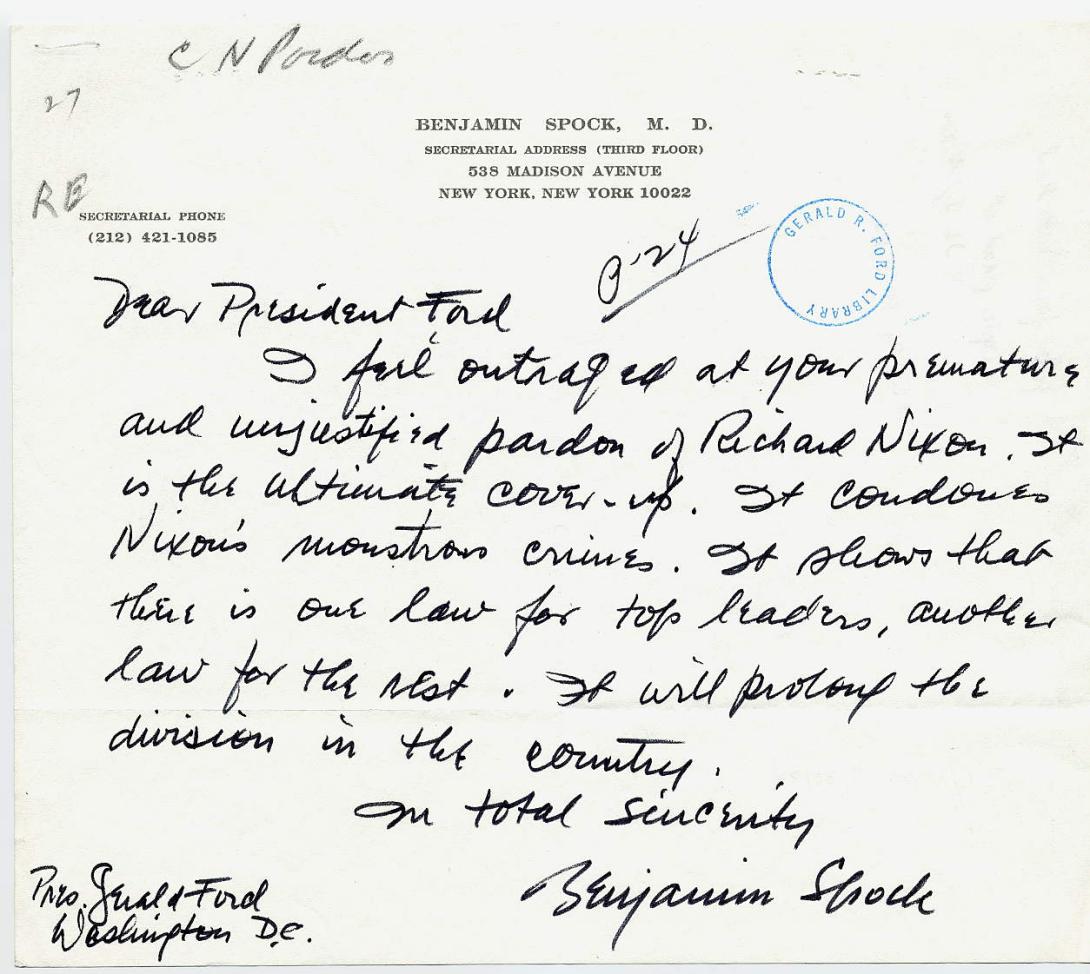 C N Pardon
27
BENJAMIN SPOCK, M. D.
SECRETARIAL ADDRESS (THIRD FLOOR)
538 MADISON AVENUE
NEW YORK, NEW YORK 10022
RE
SECRETARIAL PHONE
(212) 421-1085
GERALD R. FORD LIBRARY
Dear President Ford
I feel outraged at your premature
and unjustified pardon of Richard Nixon. It
is the ultimate cover-up. It condones
Nixon's monstrous crimes. It shows that
there is one law for top leaders, another
law for the rest. It will prolong the
division in the country.
In total sincerity
Benjamin Spock
Pres. Gerald Ford
Washington D.C.